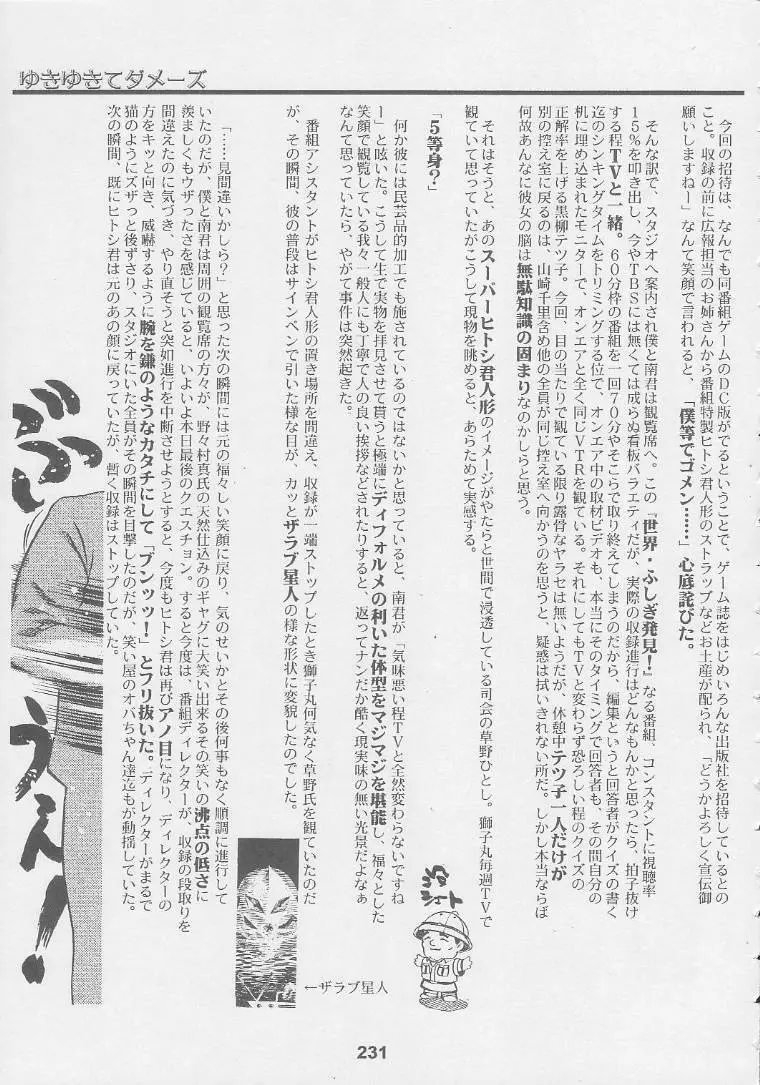 ゆきゆきてダメーズ
今回の招待は、なんでも同番組ゲームのDC版がでるということで、ゲーム誌をはじめいろんな出版社を招待しているとの
こと。収録の前に広報担当のお姉さんから番組特製ヒトシ君人形のストラップなどお土産が配られ、「どうかよろしく宣伝御
願いしますねー」なんて笑顔で言われると、「僕等でゴメン……」心底詫びた。
そんな訳で、スタジオへ案内され僕と南君は観覧席へ。この『世界・ふしぎ発見!』なる番組、コンスタントに視聴率
15%を叩き出し、今やTBSには無くては成らぬ看板バラエティだが、実際の収録進行はどんなもんかと思ったら、拍子抜け
する程TVと一緒。60分枠の番組を一回70分やそこらで取り終えてしまうのだから、編集というと回答者がクイズの書く
迄のシンキングタイムをトリミングする位で、オンエア中の取材ビデオも、本当にそのタイミングで回答者も、その間自分の
机に埋め込まれたモニターで、オンエアと全く同じVTRを観ている。それにしてもTVと変わらず恐ろしい程のクイズの
正解率を上げる黒柳テツ子。今回、目の当たりで観ている限り露骨なヤラセは無いようだが、休憩中テツ子一人だけが
別の控え室に戻るのは、山崎千里含め他の全員が同じ控え室へ向かうのを思うと、疑惑は拭いきれない所だ。しかし本当ならば
何故あんなに彼女の脳は無駄知識の固まりなのかしらと思う。
それはそうと、あのスーパーヒトシ君人形のイメージがやたらと世間で浸透している司会の草野ひとし。獅子丸毎週TVで
観ていて思っていたがこうして現物を眺めると、あらためて実感する。
「5等身?」
何か彼には民芸品的加工でも施されているのではないかと思っていると、南君が「気味悪い程TVと全然変わらないですね
ー」と呟いた。こうして生で実物を拝見させて貰うと極端にディフォルメの利いた体型をマジマジを堪能し、福々とした
笑顔で観覧している我々一般人にも丁寧で人の良い挨拶などされたりすると、返ってナンだか酷く現実味の無い光景だよなぁ
なんて思っていたら、やがて事件は突然起きた。
番組アシスタントがヒトシ君人形の置き場所を間違え、収録が一端ストップしたとき獅子丸何気なく草野氏を観ていたのだ
が、その瞬間、彼の普段はサインペンで引いた様な目が、カッとザラブ星人の様な形状に変貌したのでした。
「……見間違いかしら?」と思った次の瞬間には元の福々しい笑顔に戻り、気のせいかとその後何事もなく順調に進行して
いたのだが、僕と南君は周囲の観覧席の方々が、野々村真氏の天然仕込みのギャグに大笑い出来るその笑いの沸点の低さに
羨ましくもウザったさを感じていると、いよいよ本日最後のクエスチョン。すると今度は、番組ディレクターが、収録の段取りを
間違えたのに気づき、やり直そうと突如進行を中断させようとすると、今度もヒトシ君は再びアノ目になり、ディレクターの
方をキッと向き、威嚇するように腕を鎌のようなカタチにして「ブンッッ!」とフリ抜いた。ディレクターがまるで
猫のようにズザっと後ずさり、スタジオにいた全員がその瞬間を目撃したのだが、笑い屋のオバちゃん達迄もが動揺していた。
次の瞬間、既にヒトシ君は元のあの顔に戻っていたが、暫く収録はストップしていた。
←ザラブ星人
231